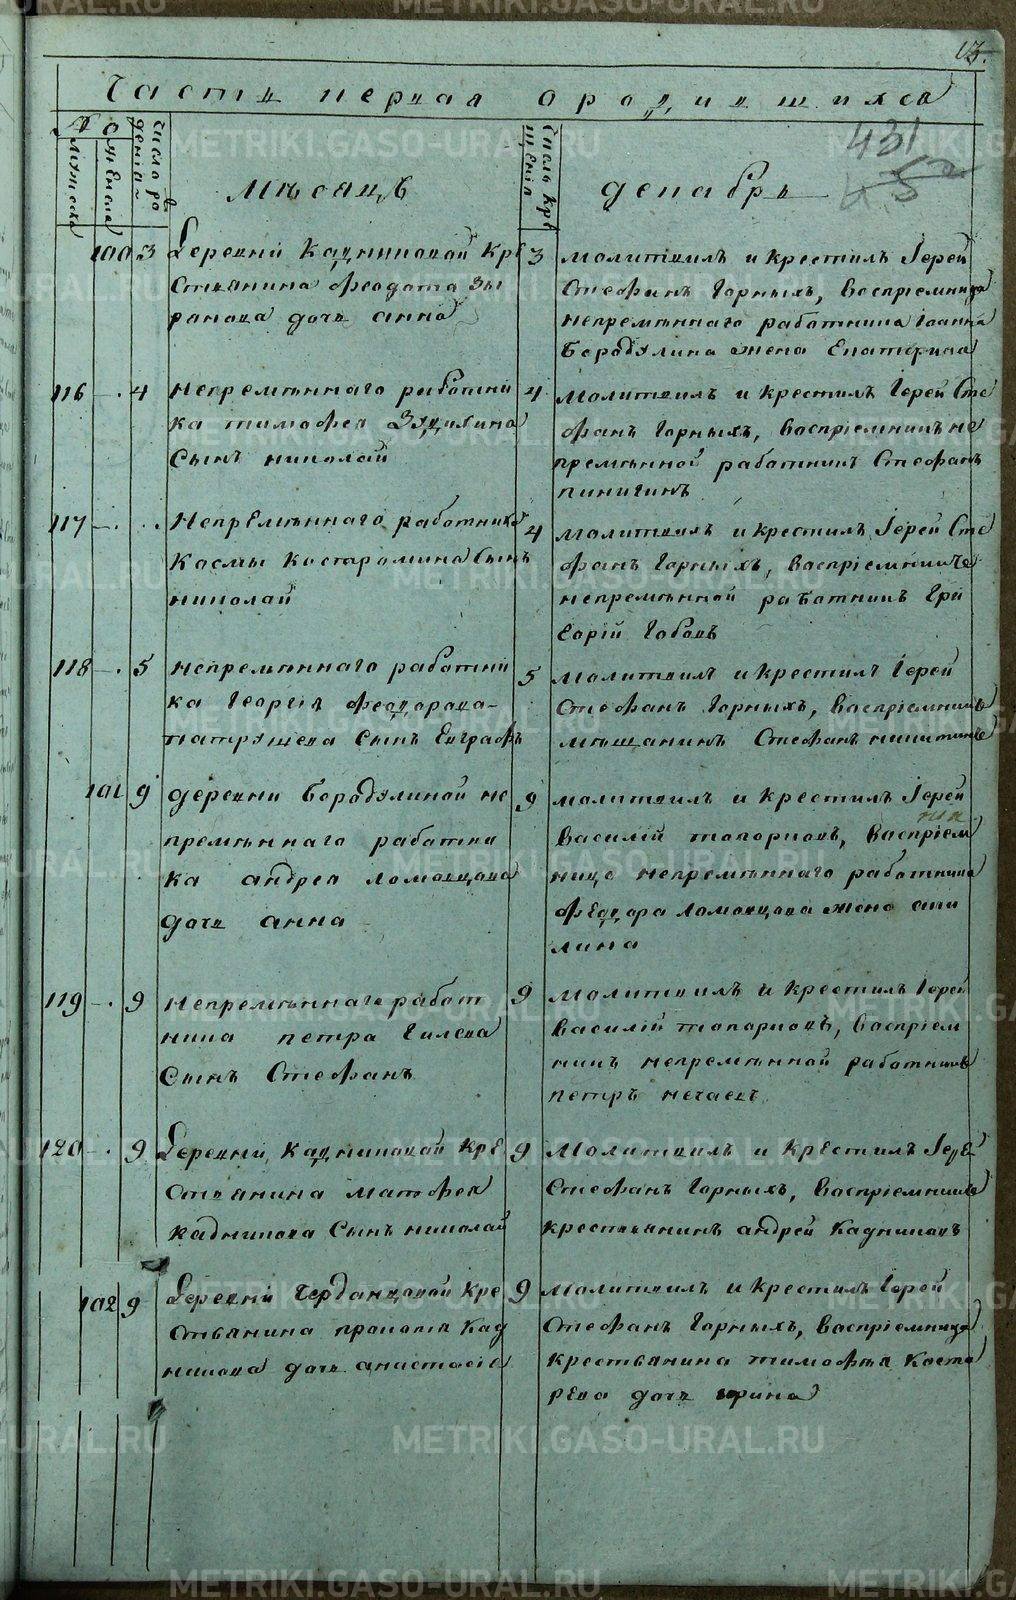 13.
Часть первая о родившихся
431
№
мужеска
женска
число рождения
Мѣсяцъ
число крещения
декабрь
100 3 Деревни Кадниковой Кре
стьянина Феодота Зы
ранова дочь анна
3 молитвилъ и крестилъ Іерей
Стефанъ Горныхъ, воспріемница
непремѣннаго работника Іоанна
Бородулина жена Екатерина
116 4 непремѣннаго работни
ка тимофея
сынъ николай
4 молитвилъ и крестилъ Іерей Сте
фанъ Горныхъ, воспріемникъ не
премѣнной работникъ Стефанъ
пинигинъ
117 Непремѣннаго работника
Космы Костаромина сынъ
николай
4 молитвилъ и крестилъ Іерей Сте
фанъ Горныхъ, воспріемникъ
непремѣнной работникъ Гри
горій Бобовъ
118 5 непремѣннаго работни
ка Георгія феодорова
патрушева сынъ Евграфъ
5 молитвилъ и крестилъ Іерей
Стефанъ Горныхъ, воспріемникъ
мѣщанинъ Стефанъ никитинъ
101 9 деревни Бородулиной не
премѣннаго работни
ка андрея ломовцова
дочь анна
9 молитвилъ и крестилъ Іерей
василій топорковъ, воспріем
ница непремѣннаго работника
Феодора ломовцова жена аки
лина
119 9 непремѣннаго работ
ника петра Гилева
Сынъ Стефанъ
9 молитвилъ и крестилъ Іерей
василій топорковъ, воспріем
никъ непремѣнной работникъ
петръ нечаевъ
120 9 Деревни Кадниковой Кре
стьянина матфея
кадникова Сынъ николай
9 молитвилъ и крестилъ Іерей
Стефанъ Горныхъ, воспріемникъ
крестьянинъ андрей Кадниковъ
102 9 Деревни Черданцовой Кре
стьянина прокопія Кад
никова дочь анастасіе
9 молитвилъ и крестилъ Іерей
Стефанъ Горныхъ, воспріемница
крестьянина тимофѣя Коста
рева дочь ирина
METRIKI.GASO-URAL.RU